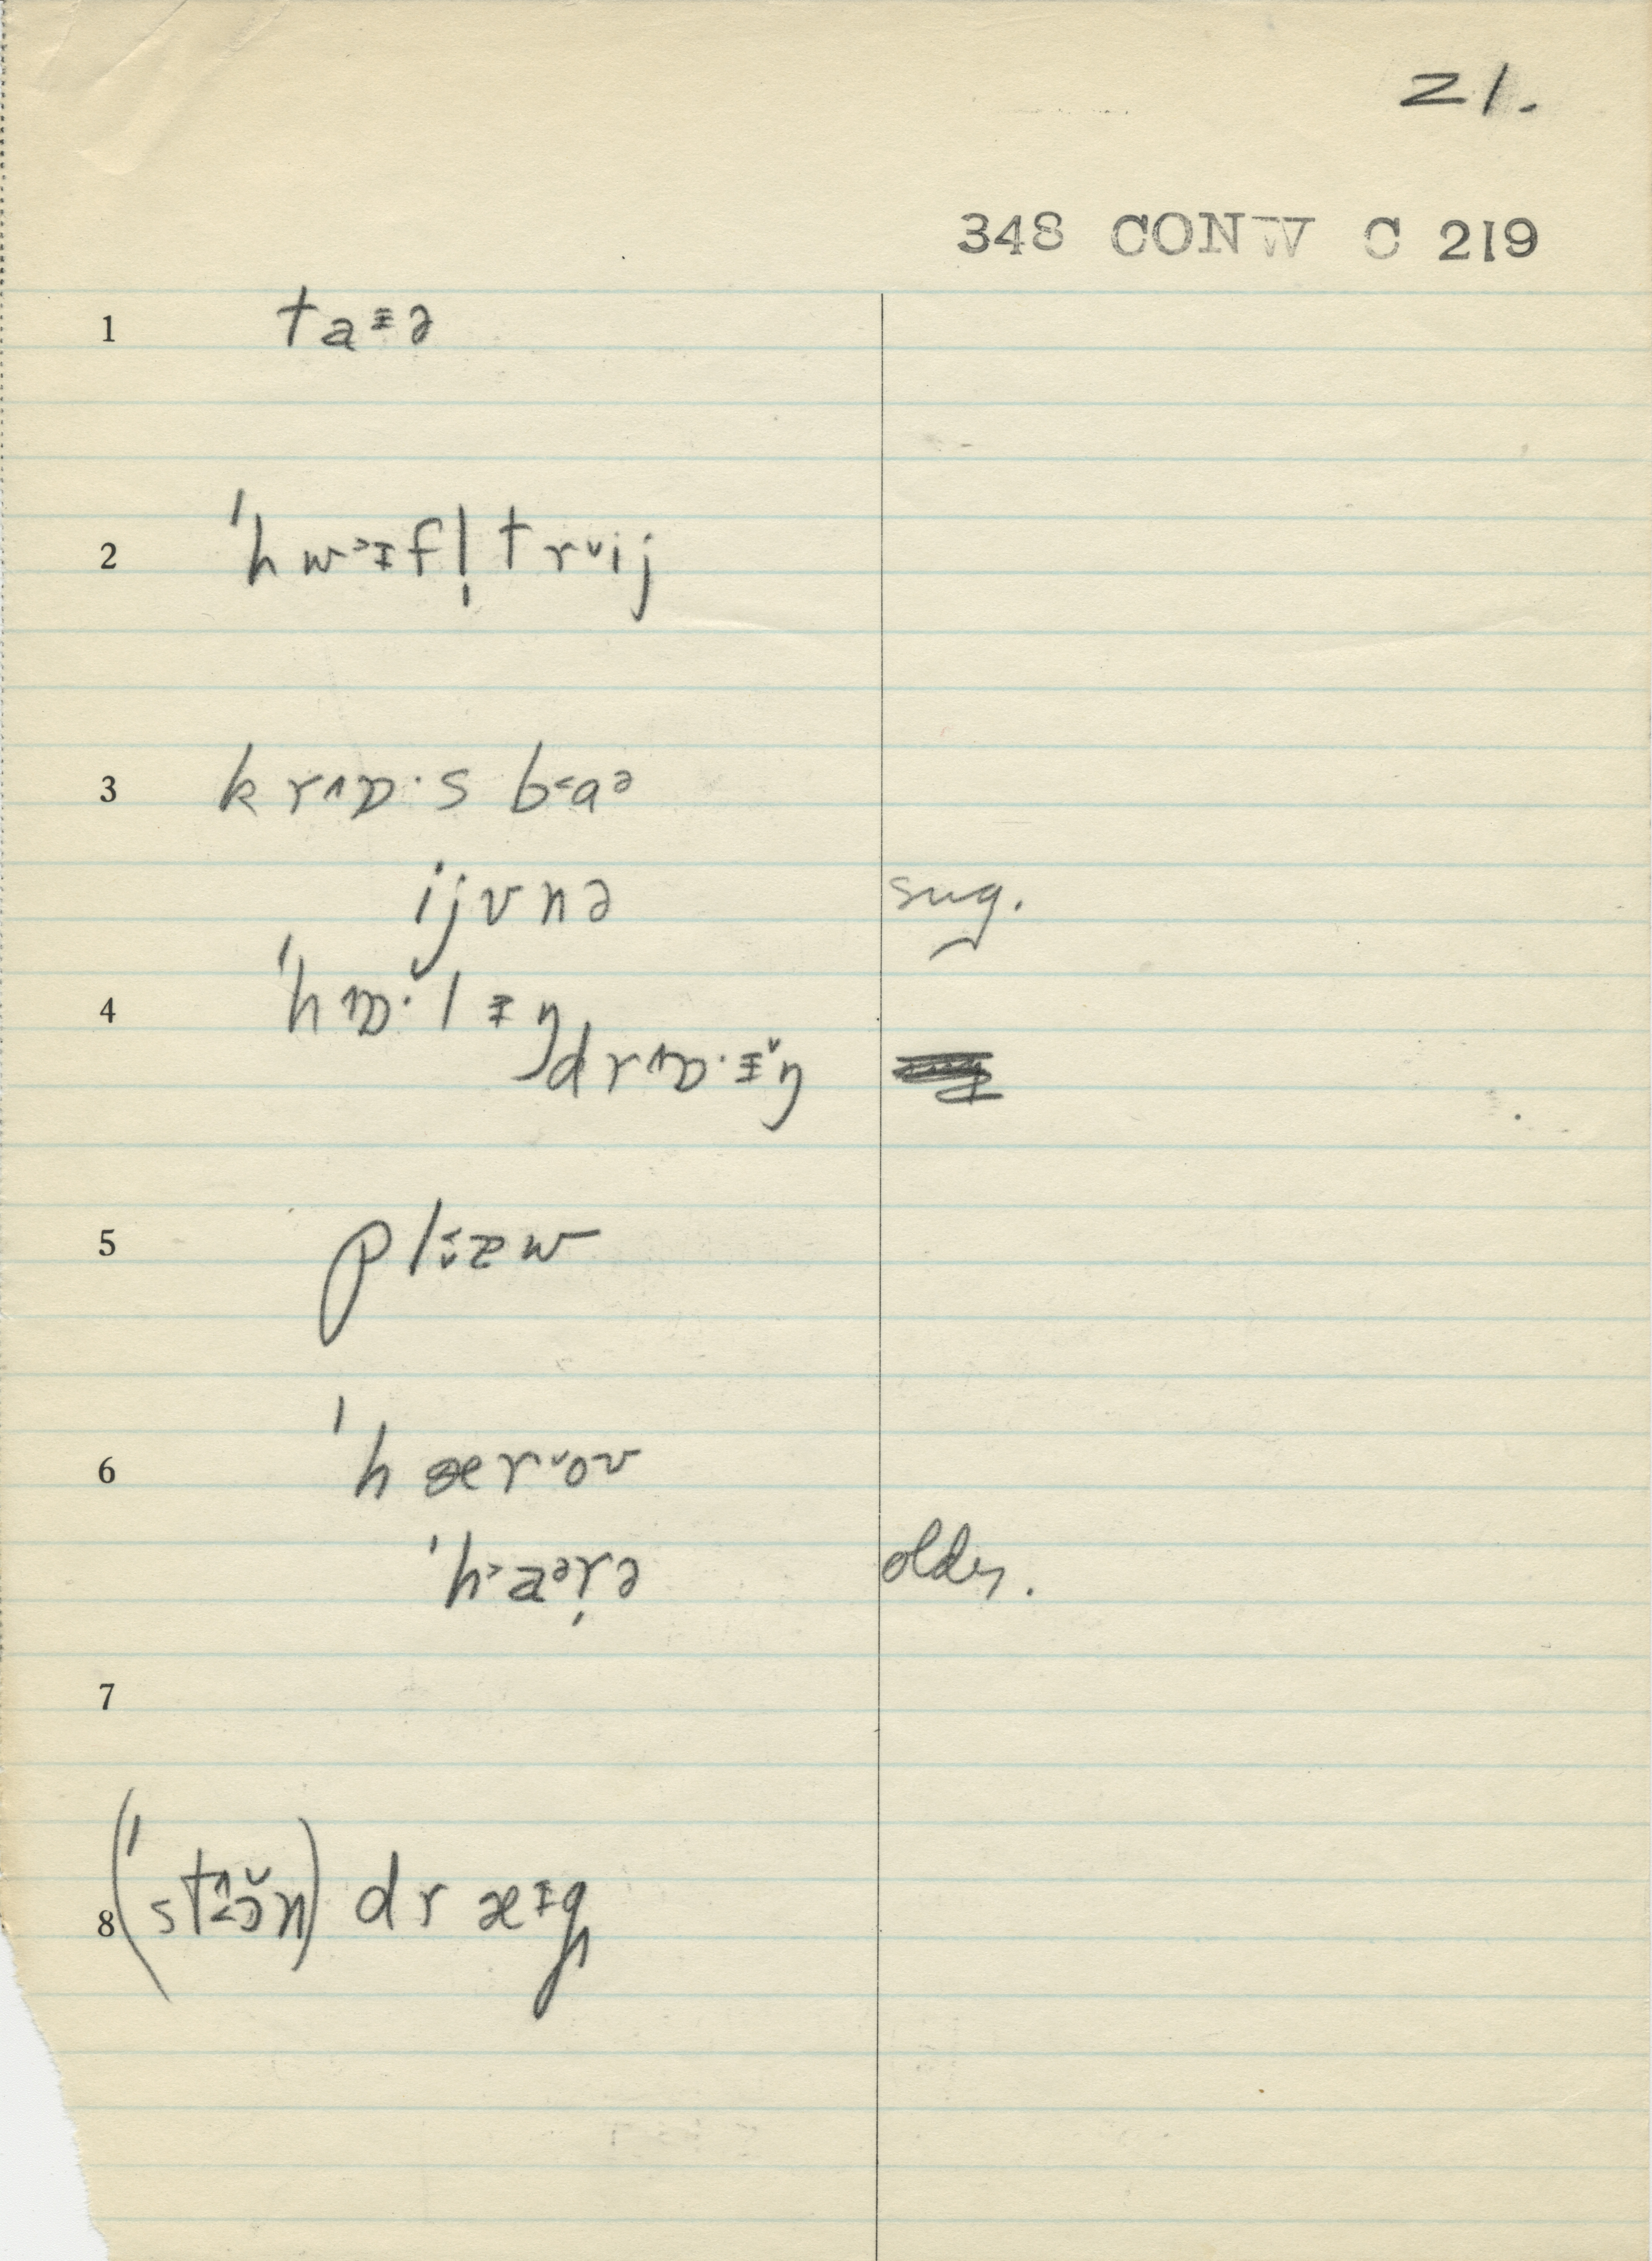 21.
348 CONW C 219
1 ta ᵻ ə
2 ˈhw˃ᵻfl̩trᵛij
3 krʌɒ·s b˂aᵊ
ijvnə sug.
4 ˈhʌɒ·lᵻŋ
drʌɒ·ᵻ̆ŋ
5 plizw
6 ˈhærᵛov
ˈh˃aᵊr̩ə older.
7
8 (ˈstɔ̆n) dræᵻg